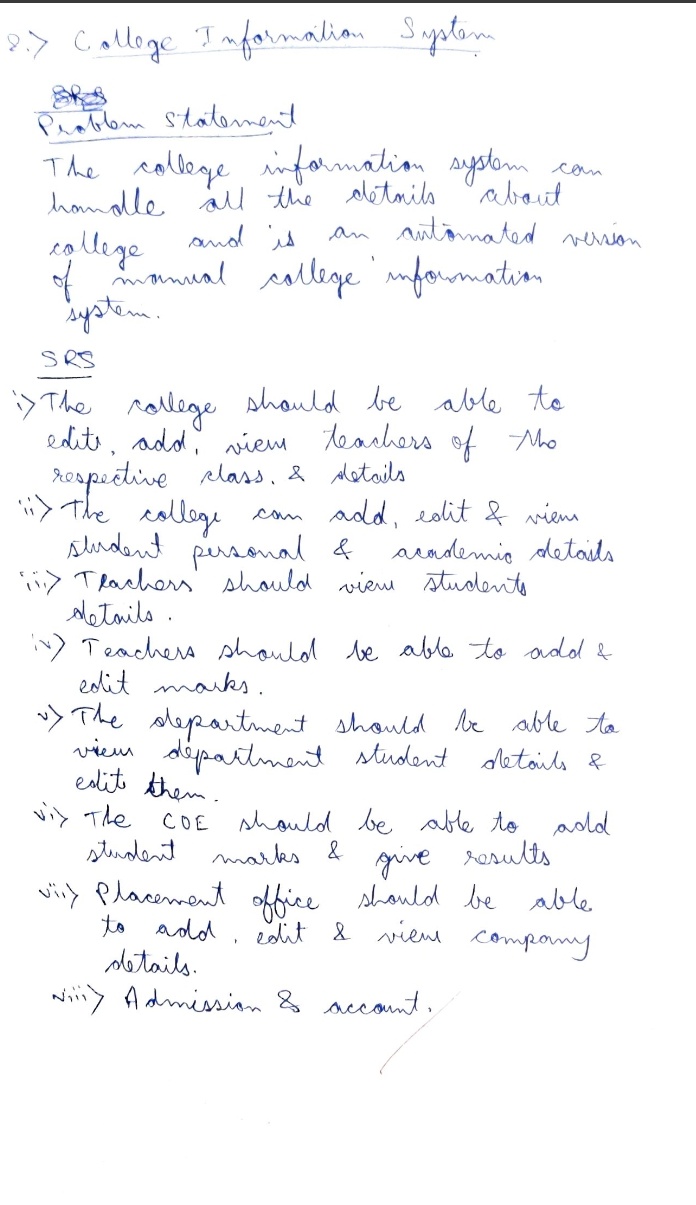 8.> College Information System
SRS
Problem Statement
The college information system can
handle all the details about
college and is an automated version
of manual college information
system.
SRS
i> The college should be able to
edit, add, view teachers of the
respective class. & details
ii> The college can add, edit & view
student personal & academic details
iii> Teachers should view students
details.
iv) Teachers should be able to add &
edit marks.
v> The department should be able to
view department student details &
edit them.
vi> The COE should be able to add
student marks & give results
vii> Placement office should be able
to add, edit & view company
details.
viii> Admission & account.